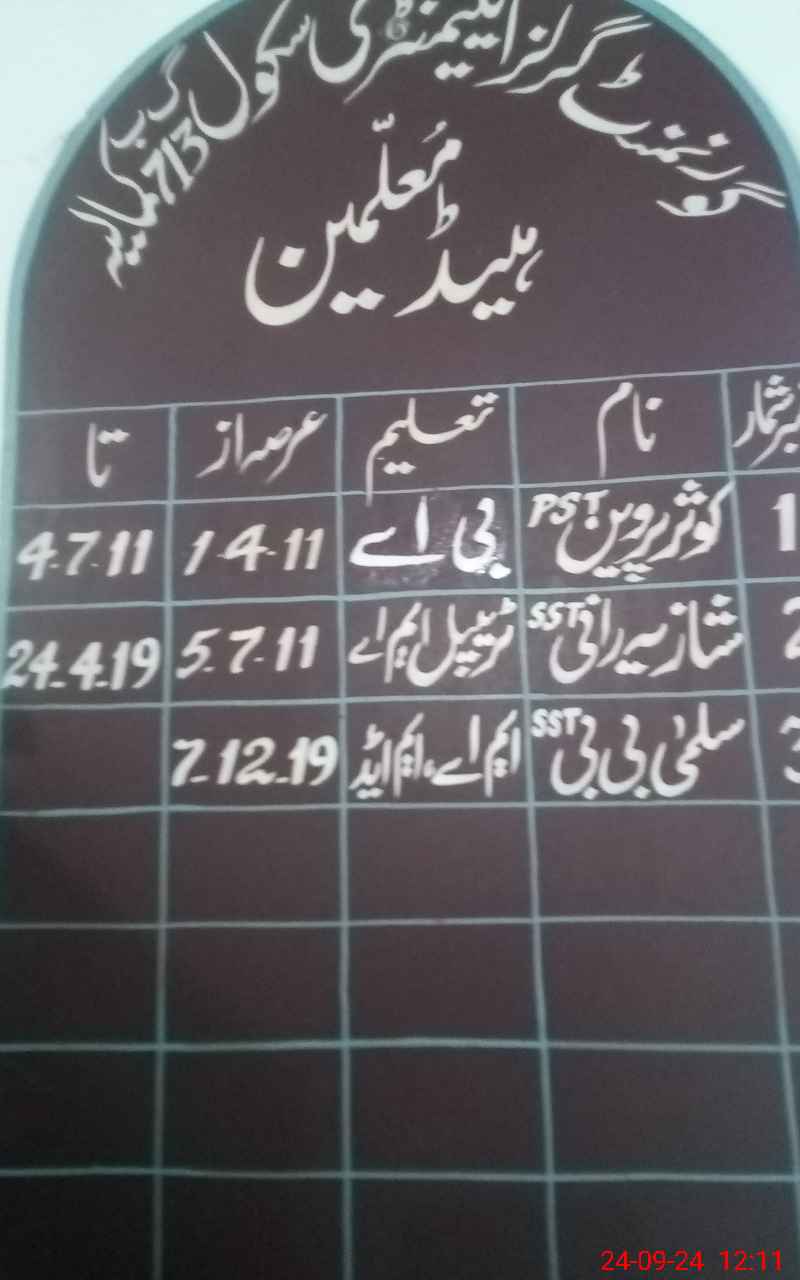 گورنمنٹ گرلز ایلیمنٹری سکول 713 گ ب کمالیہ
ہیڈ معلّمین
نمبر شمار نام تعلیم عرصہ از تا
1 کوثر پروین PST بی اے 1-4-11 4-7-11
2 شازیہ رانی SST ٹریپل ایم اے 5-7-11 24-4-19
3 سلمیٰ بی بی SST ایم اے، ایم ایڈ 7-12-19
24-09-24 12:11